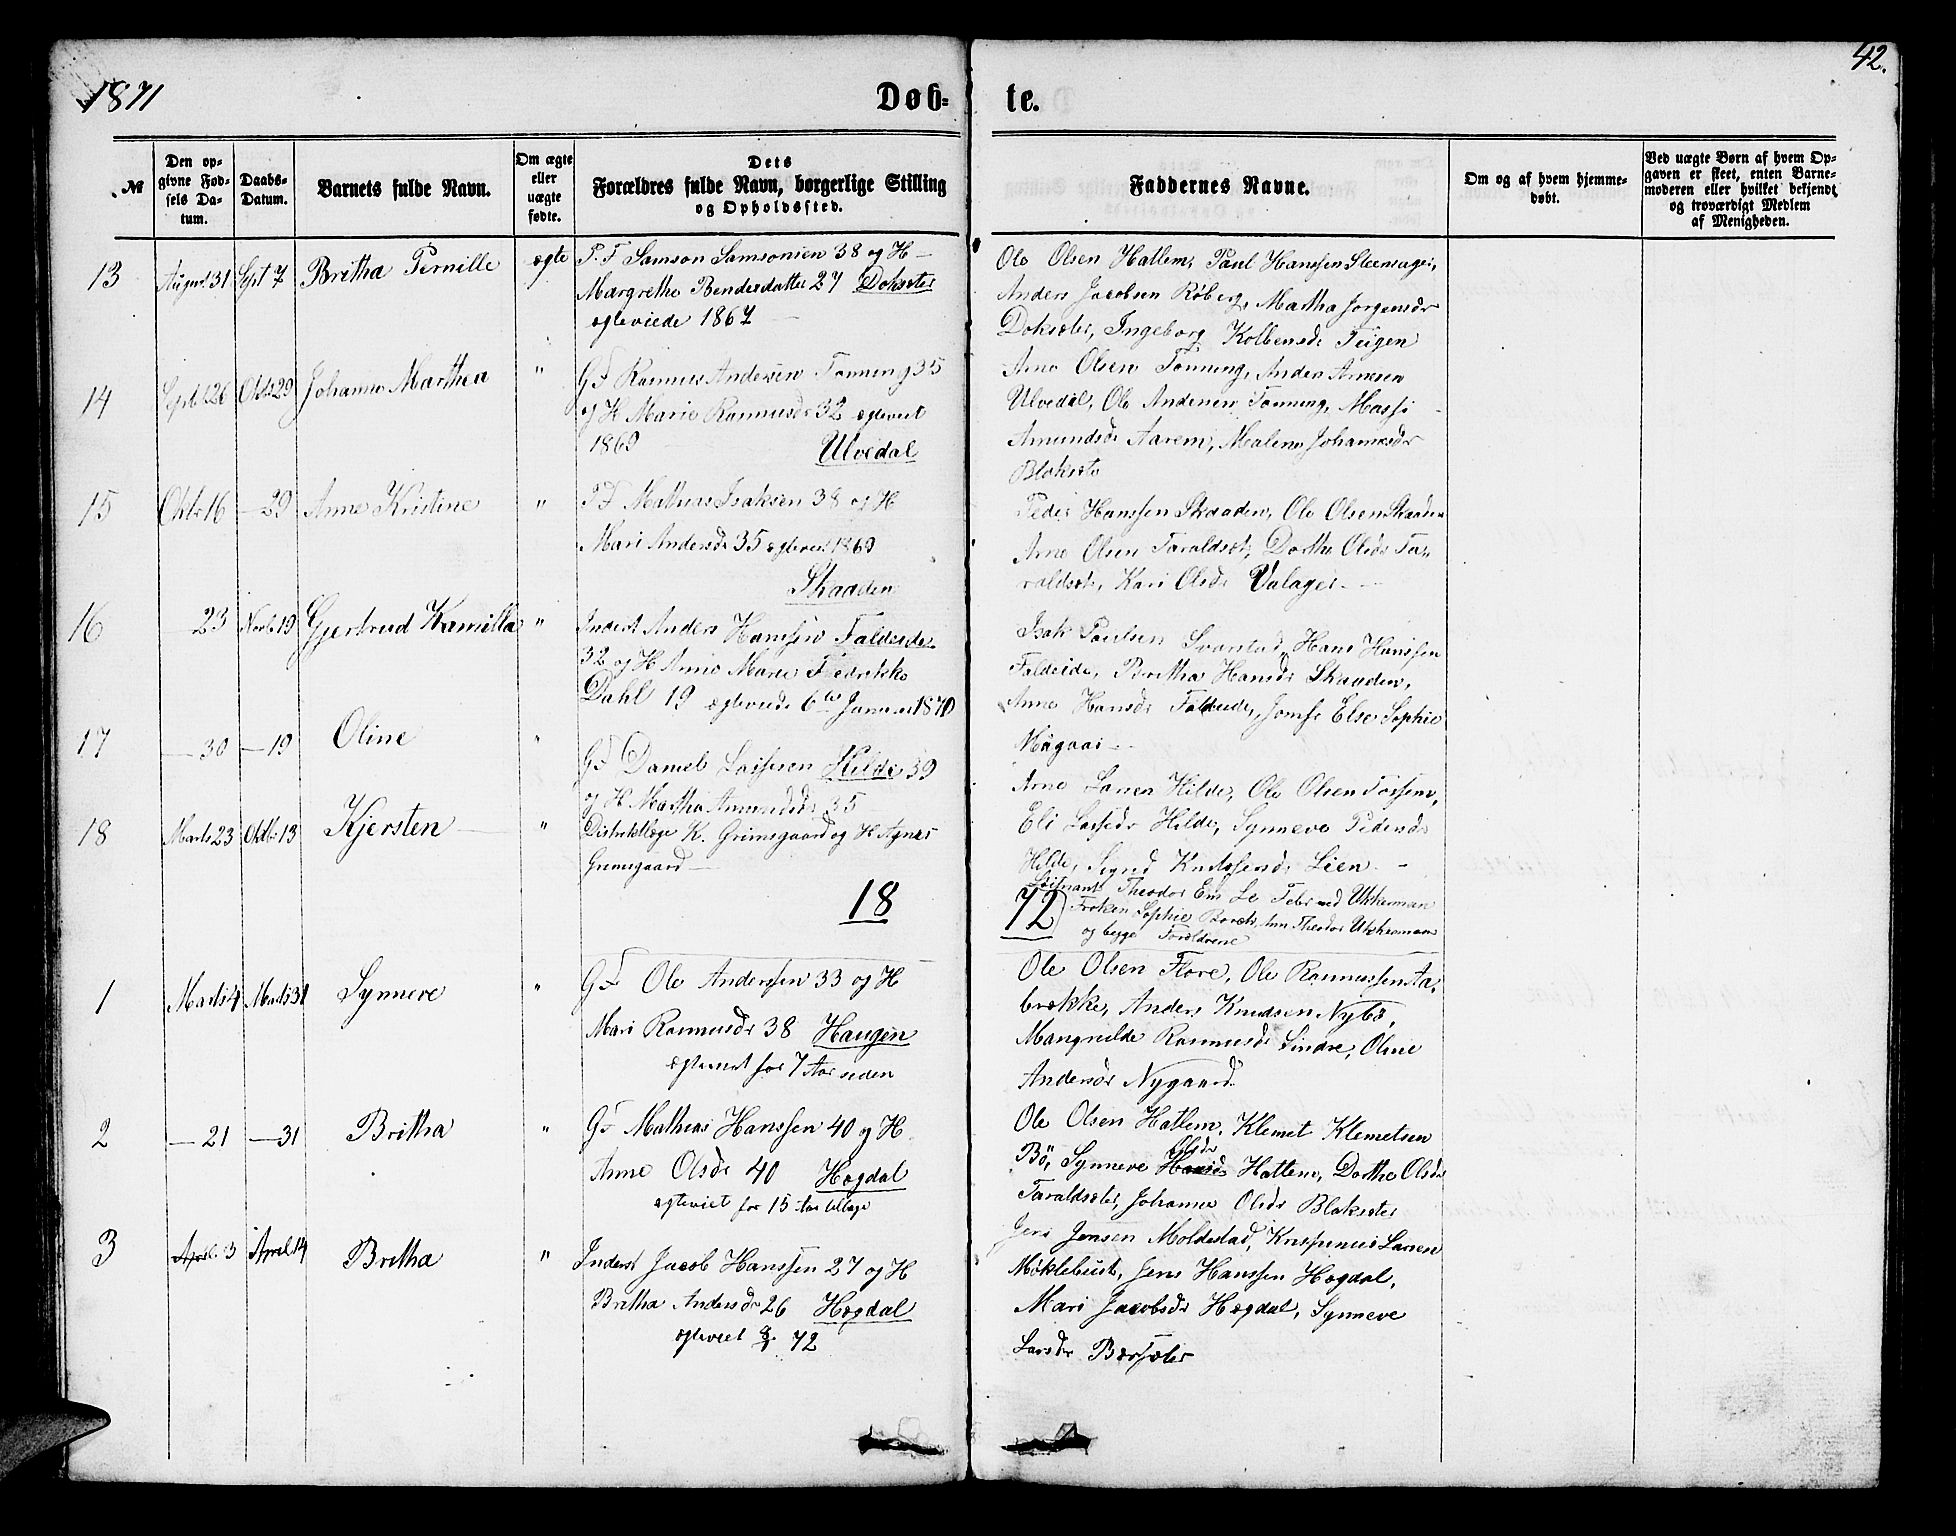 1871
Døb-
te.
42.
№
Den op-
givne Fød-
sels Da-
tum.
Daabs-
Datum.
Barnets fulde Navn.
Om ægte
eller
uægte
fødte.
Dets
Forældres fulde Navn, borgerlige Stilling
og Opholdssted.
Faddernes Navne.
Om og af hvem hjemme-
døbt.
Ved uægte Børn af hvem Op-
gaven er skeet, enten Barne-
moderen eller hvilket bekjendt
og troværdigt Medlem
af Menigheden.
13 August 31 Sept 7 Britha Pernille ægte
P. F Samson Samsonsen 38 og H
Margrethe Bendesdatter 27 Dokseter
egteviede 1867
Ole Olsen Hatlem, Paul Hanssen Steensager,
Anders Jacobsen Roberg, Martha Jorgensdr
Dokseter, Ingeborg Kolbensdr Teigen
14 Septbr 26 Oktbr 29 Johanne Marthea "
GF Rasmus Andersen Tonning 35
og H Marie Rasmusdr 32 egteviet
1869 Ulvedal
Arne Olsen Tonning, Anders Arnesen
Ulvedal, Ole Andersen Tonning, Massi
Amundsdr Aarem, Malene Johannesdr
Blakset
15 Oktbr 16 — 29 Anne Kristine "
P F Mathias Isaksen 38 og H
Mari Andersdr 35 egteviet 1869
Skaaden
Peder Hanssen Skaaden, Ole Olsen Skaaden
Arne Olsen Taraldset, Dorthe Olsdr Ta-
raldset, Kari Olsdr Valager
16 — 23 Novbr 19 Gjertrud Kamilla "
Inderst Anders Hanssen Faldeide
32 og H Anne Marie Fredrikke
Dahl 19 egteviede 6te Januar 1870
Isak Paulsen Svarstad, Hans Hanssen
Faldeide, Britha Hansdr Skaaden,
Anne Hansdr Faldeide, Jomfr Else Sophie
17 — 30 — 19 Oline "
GF Daniel Lassesen Hilde 39
og H Martha Amundsdr 35
Arne Larsen Hilde, Ole Olsen
Eli Lassedr Hilde, Synneve Pedersdr
Hilde, Sigrid Lien
18 Marts 23 Oktbr 13 Kjersten "
Distriktslæge K. Grimsgaard og H Agnes
Grimsgaard
Theodor
Frøken Sophie Theodor
og begge Forældrene
18
72
1 Marts 4 Marts 31 Synneve "
GF Ole Anderssen 33 og H
Mari Rasmusdr 38 Haugen
egteviet for 7 Aar siden
Ole Olsen Flore, Ole Rasmussen Aa-
brekke, Anders Knudsen Nybö,
Mangnilde Rasmusdr Sindre, Oline
Andersdr Nygaard
2 — 21 — 31 Britha "
GF Mathias Hanssen 40 og H
Anne Olsdr 40 Hogdal
egteviet for 15 Aar tilbage
Ole Olsen Hatlem, Klemet Klemetsen
Olsdr
Bö, Synneve Hatlem, Dorthe Olsdr
Taraldseter, Johanne Olsdr Blakseter
3 April 3 April 14 Britha "
Inderst Jacob Hanssen 27 og H
Britha Andersdr 26 Hogdal
egteviet 72
Jens Jensen Moldestad, Larsen
Möklebust, Jens Hanssen Hogdal,
Mari Jacobsdr Hogdal, Synneve
Larsdr